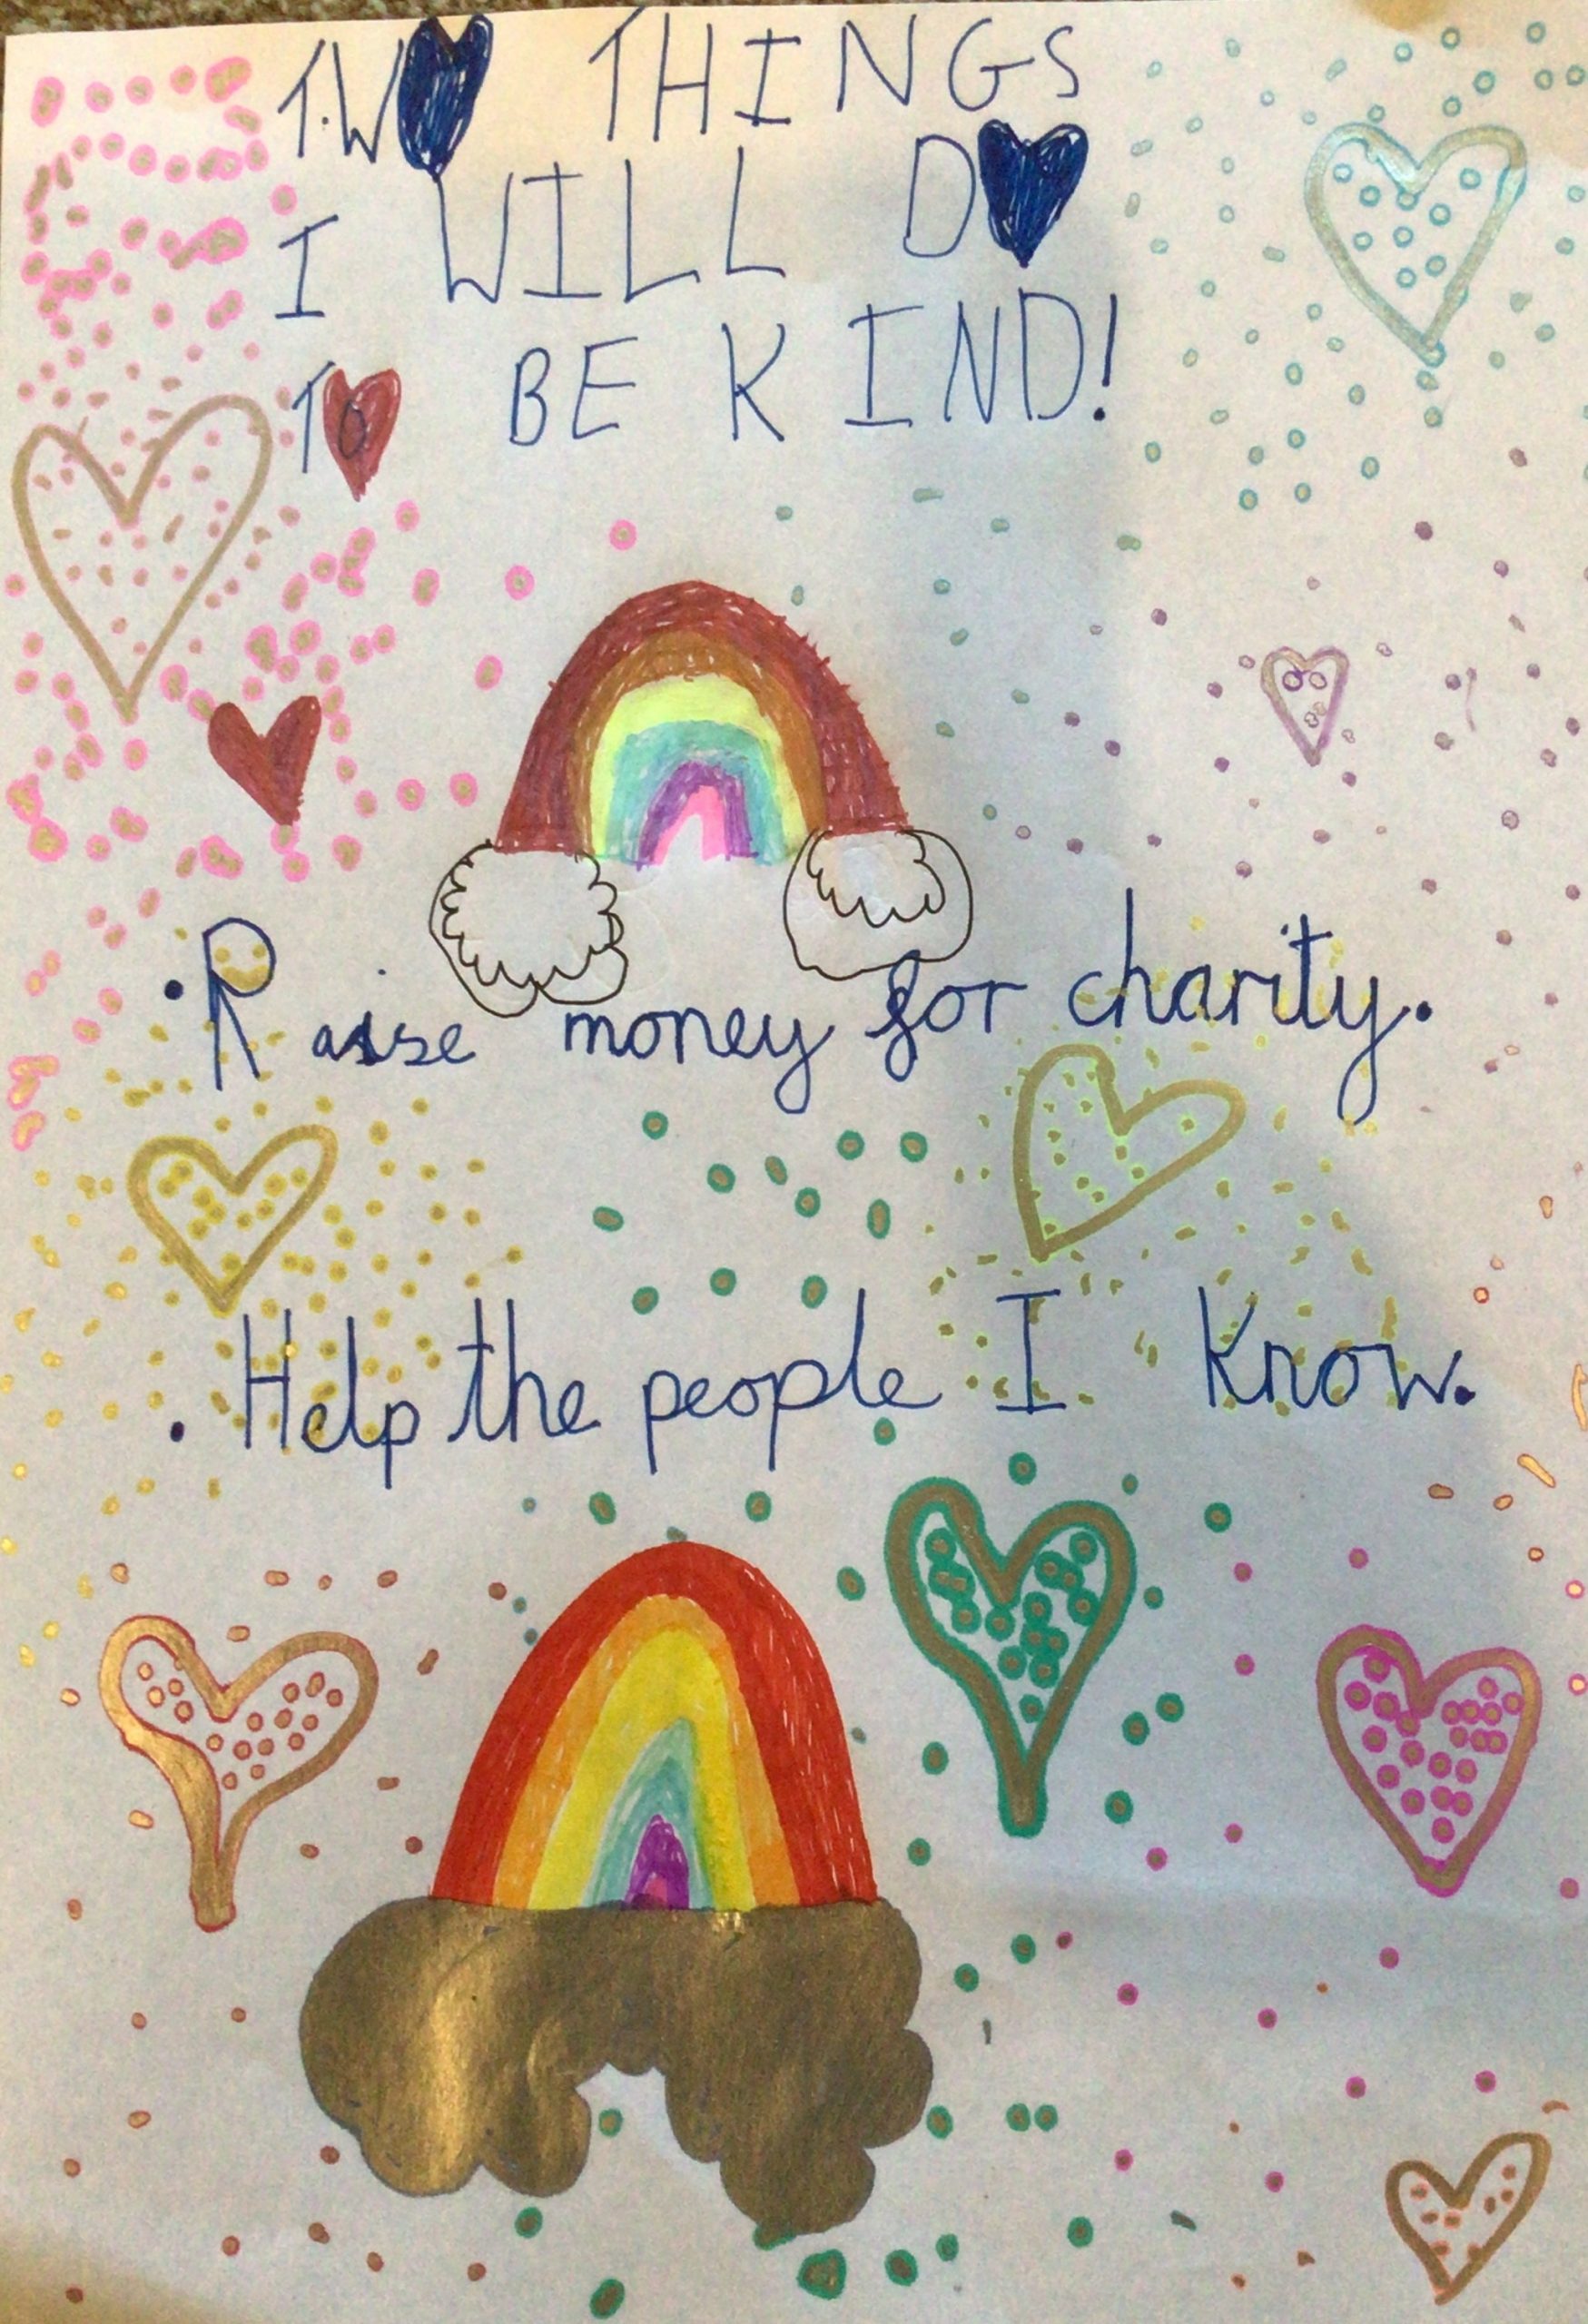 TWO THINGS
I WILL DO
TO BE KIND!
• Raise money for charity.
• Help the people I know.